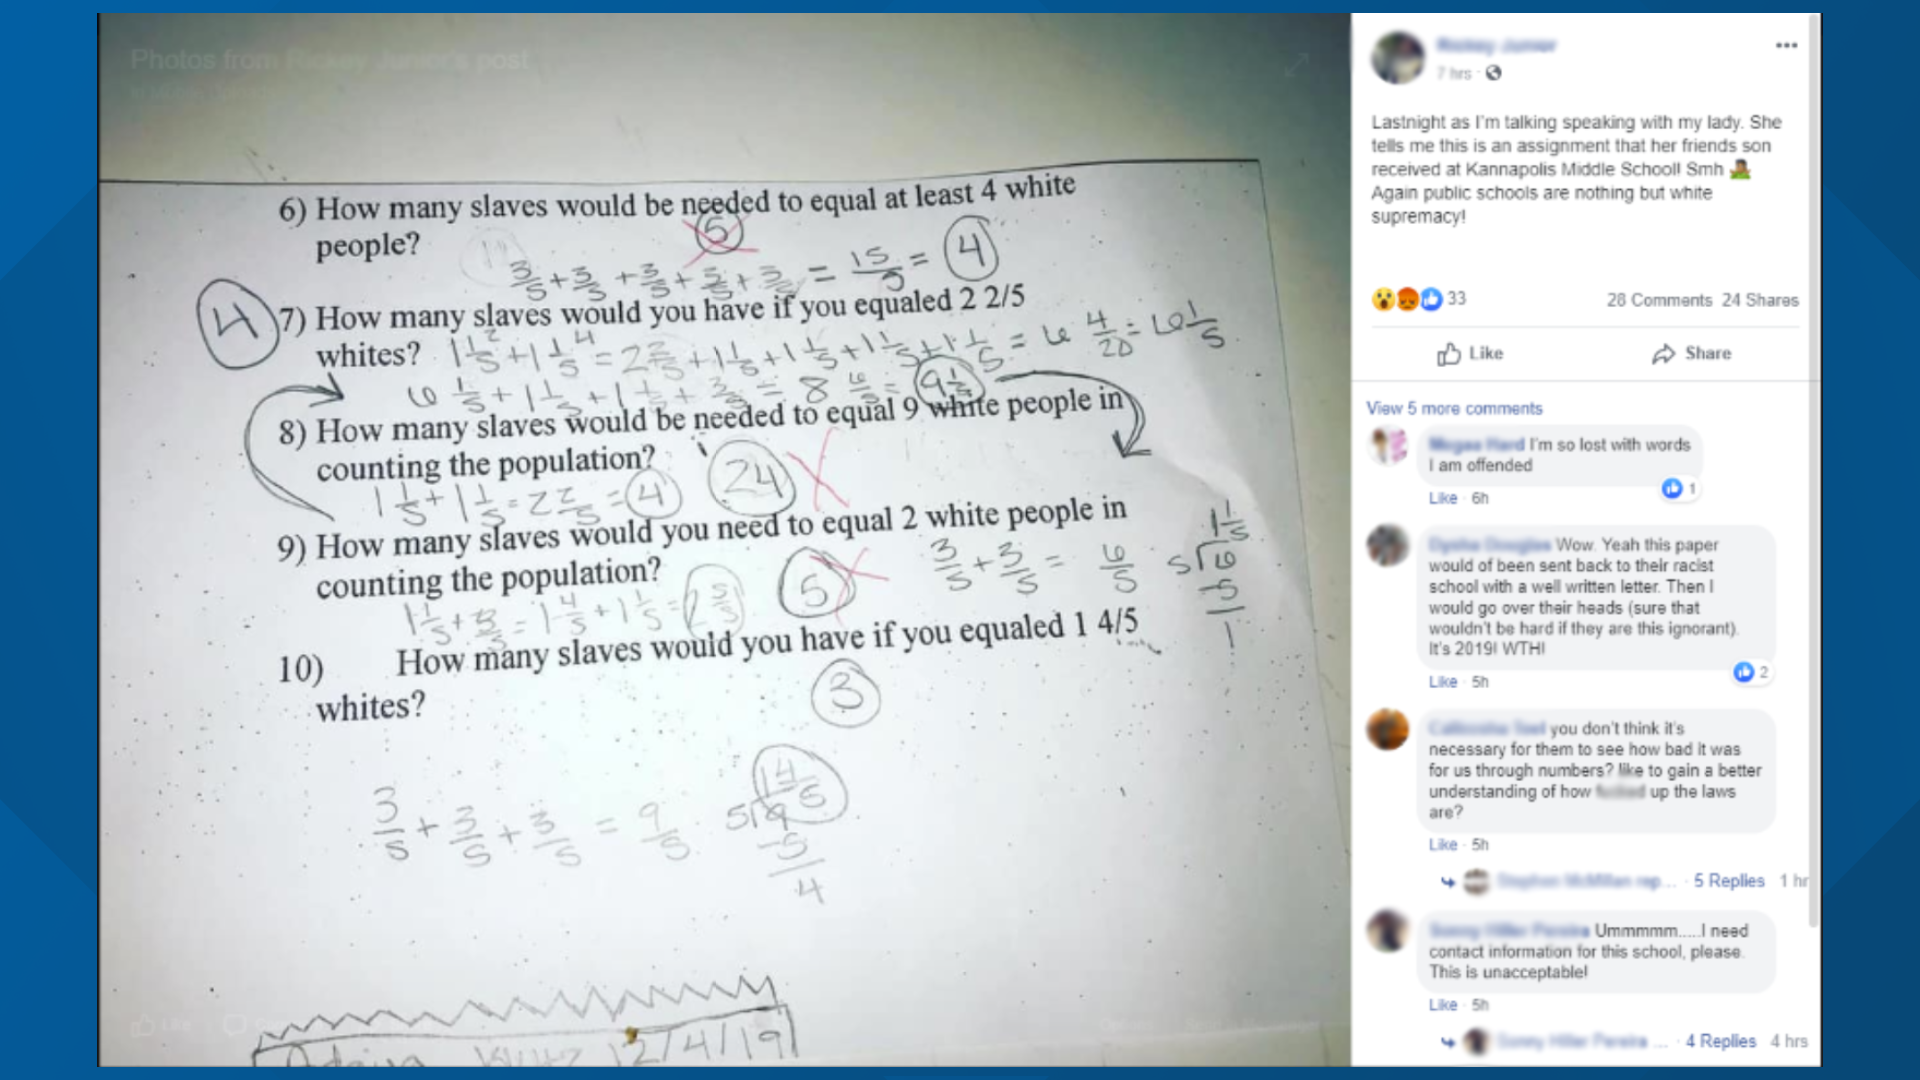 Photos from Rickey Junior's post
6) How many slaves would be needed to equal at least 4 white
people?
5
3/5 + 3/5 + 3/5 + 3/5 + 3/5 = 15/5 = 4
4
7) How many slaves would you have if you equaled 2 2/5
whites?
8) How many slaves would be needed to equal 9 white people in
counting the population?
24
1 1/5 + 1 1/5 = 2 2/5 = 4
9) How many slaves would you need to equal 2 white people in
counting the population?
5
3/5 + 3/5 = 6/5
1 1/5
5 6
-5
1
10) How many slaves would you have if you equaled 1 4/5
whites?
3
3/5 + 3/5 + 3/5 = 9/5
1 4/5
5 9
-5
4
12/4/19
7 hrs
Lastnight as I'm talking speaking with my lady. She
tells me this is an assignment that her friends son
received at Kannapolis Middle School! Smh
Again public schools are nothing but white
supremacy!
33
28 Comments 24 Shares
Like Share
View 5 more comments
I'm so lost with words
I am offended
1
Like · 6h
Wow. Yeah this paper
would of been sent back to their racist
school with a well written letter. Then I
would go over their heads (sure that
wouldn't be hard if they are this ignorant).
It's 2019! WTH!
2
Like · 5h
you don't think it's
necessary for them to see how bad it was
for us through numbers? like to gain a better
understanding of how up the laws
are?
Like · 5h
5 Replies 1 hr
Ummmmm.....I need
contact information for this school, please.
This is unacceptable!
Like · 5h
4 Replies 4 hrs